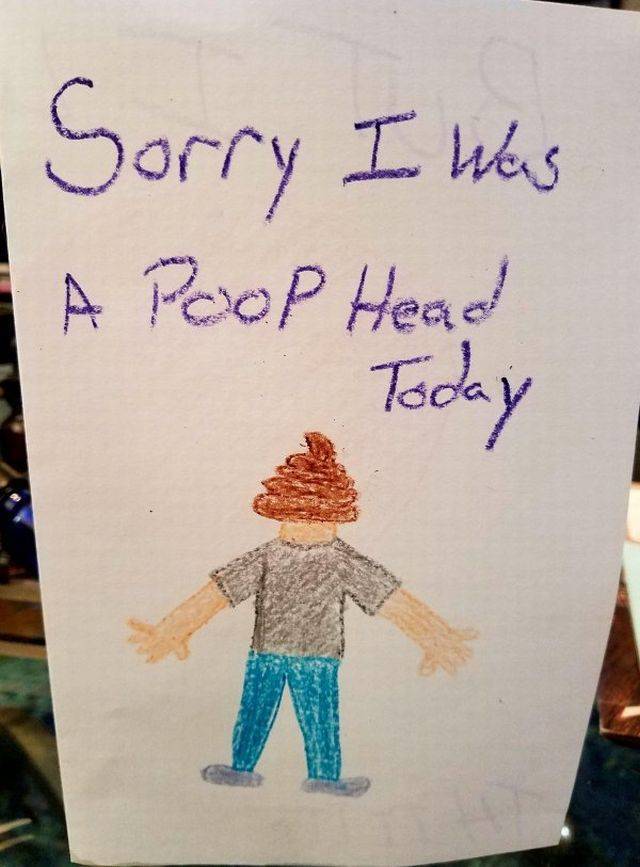 Sorry I Was
A PooP Head
Today